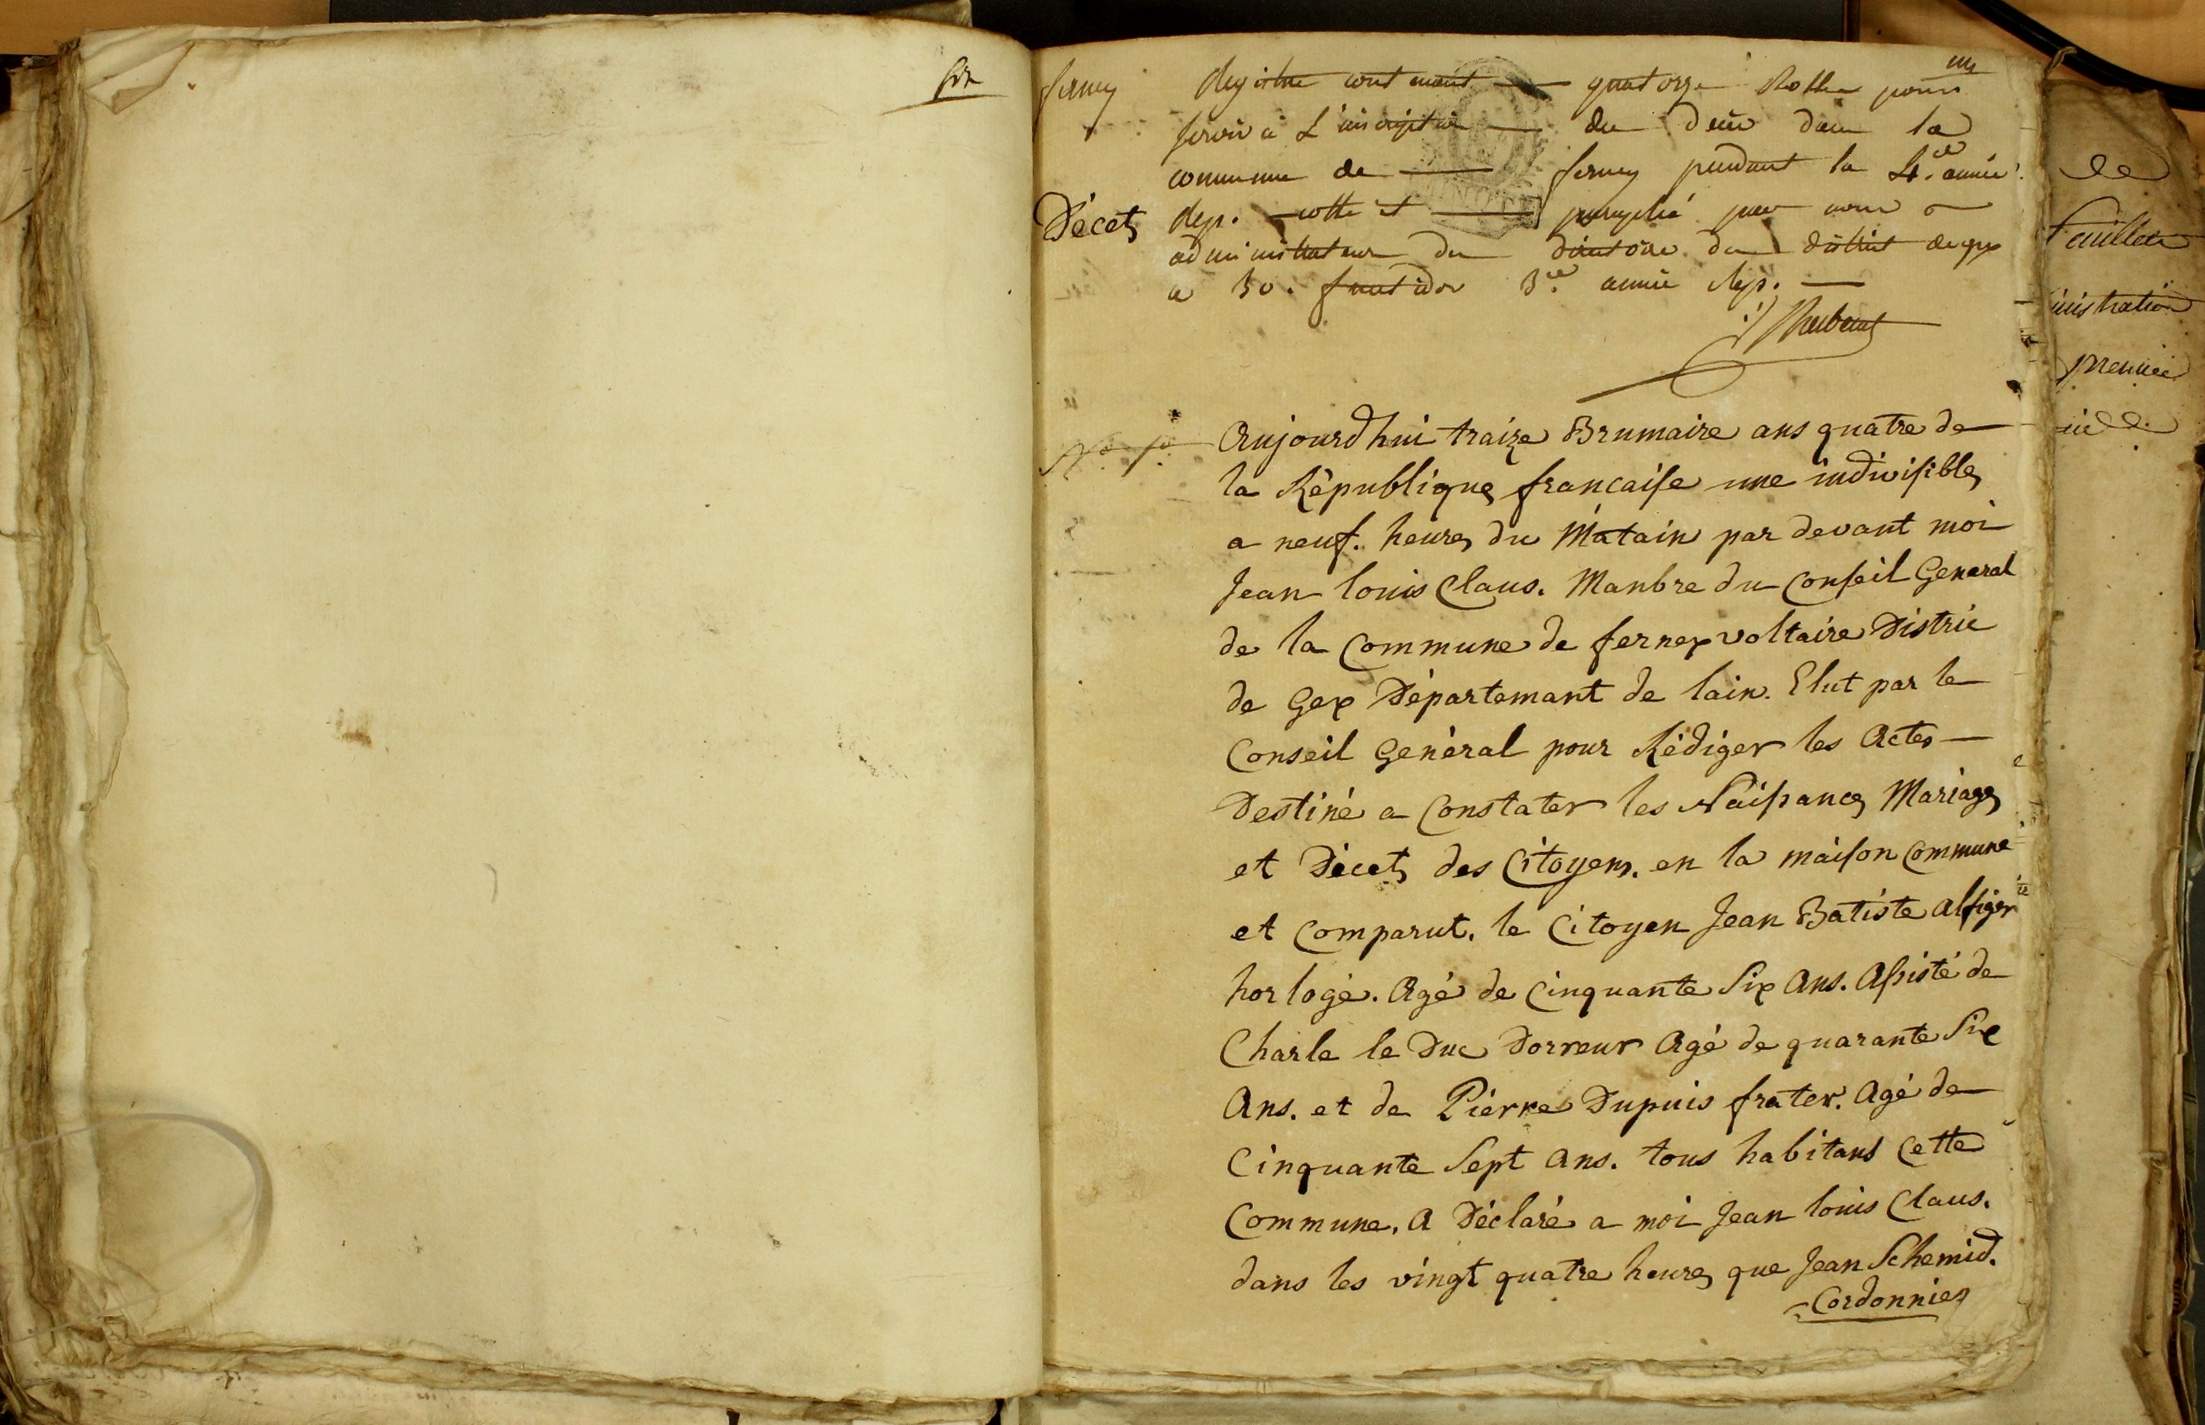 six
fernex
Registre contenant quatorze Rolles pour
un
servir à L'inscription des Décès dans la
commune de fernex pendant la 4.e année
Décets
Rep. cotté et paraphé par nous
administrateur du directoire du district de gex
a 30. fructidor 3.e année Rep.
No. 1o.
Aujourd'hui traize Brumaire ans quatre de
la Républiques francaise une indivisibles
a neuf. heures du Matain par devant moi
Jean louis Claus. Manbre du Conseil Géneral
de la Commune de fernex voltaire Distric
de Gex Départemant de lain. Elut par le
Conseil Général pour Rédiger les Actes
Destiné a Constater les Naissances Mariages
et Décets des Citoyens. en la maison Commune
et Comparut. le Citoyen Jean Batiste alfiger
horlogé. Agé de Cinquante Six Ans. Assisté de
Charle le Duc Dorreur Agé de quarante Six
Ans. et de Piérre Dupuis frater. Agé de
Cinquante Sept Ans. tous habitans Cette
Commune. A Déclaré a moi Jean louis Claus.
dans les vingt quatre heures que Jean Schemid.
Cordonnier
de
feuillets
inistration
premier